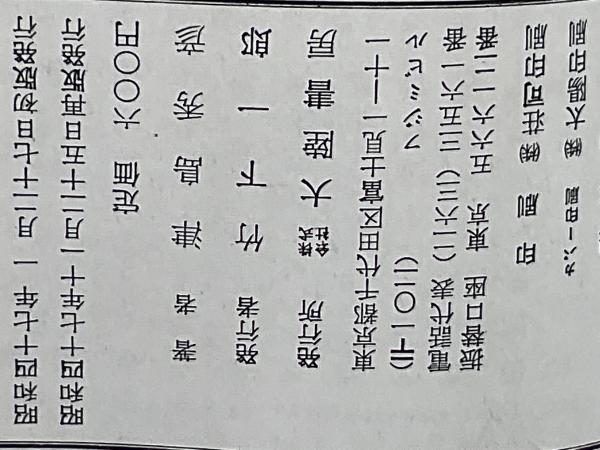 昭和四十七年 一 月二十七日初版発行
昭和四十七年十一月二十五日再版発行
定価 六〇〇円
著者 津島秀彦
発行者 竹下一郎
発行所 株式会社 大陸書房
東京都千代田区富士見一ー十一
(〒一〇二) フジミビル
電話代表(二六三)三五六一番
振替口座 東京 五六六一二番
印刷 ㈱荘司印刷
カバー印刷 ㈱太陽印刷